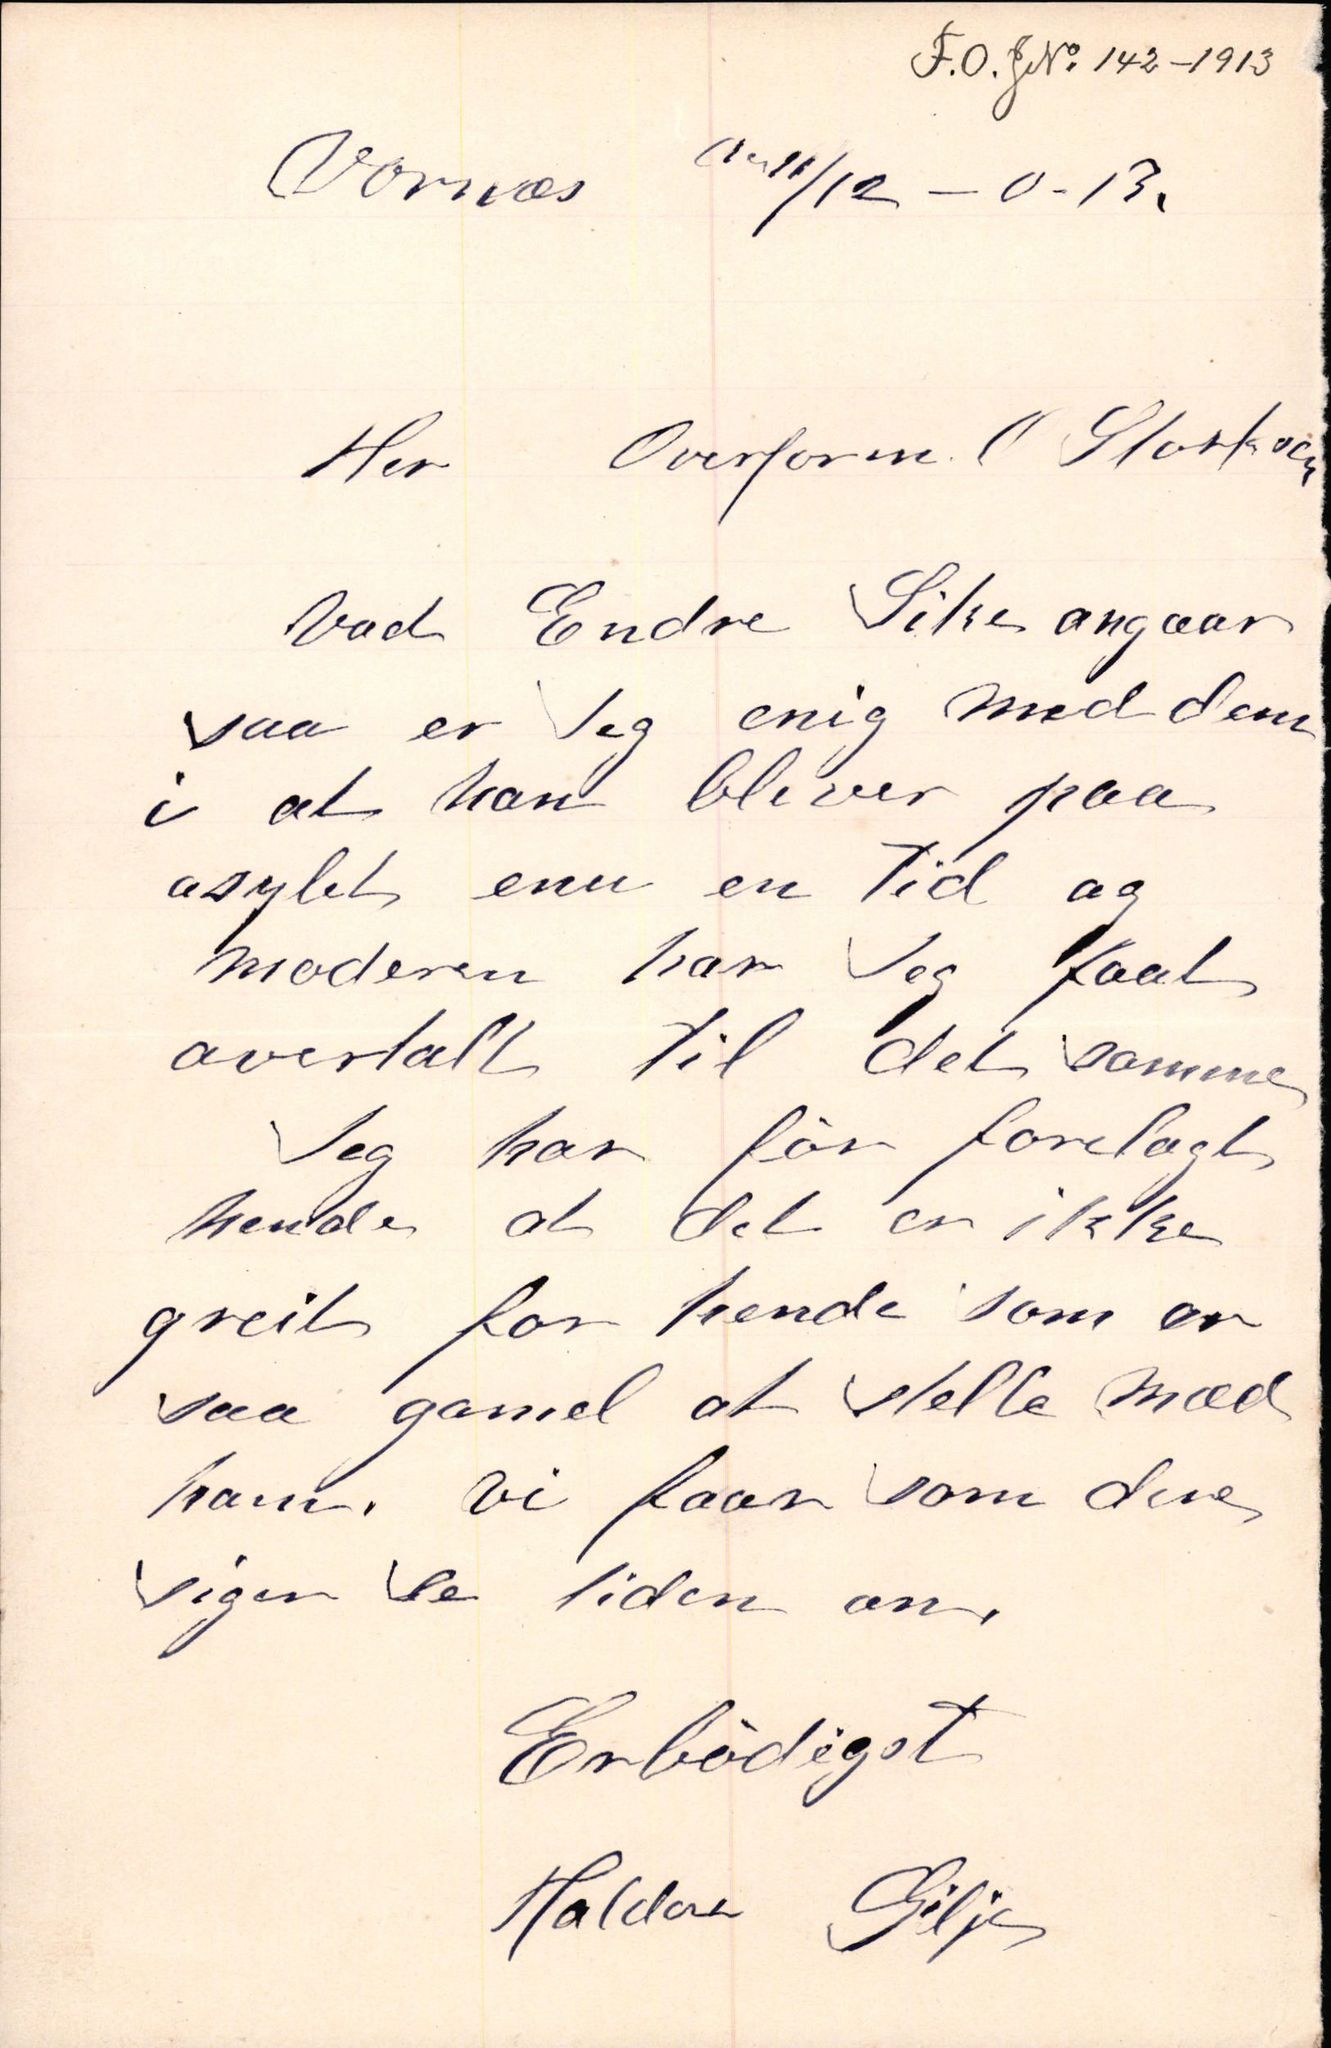 F.O. JNo. 142-1913
Vornæs 11/12 - 0-13.
Her Overform. O
Vad Endre Like angaar
saa er Jeg enig med dem
i at han bliver paa
asylet enu en Tid og
moderen har Jeg faat
overtalt til det samme
Jeg har för forelagt
hende at det er ikke
greit for hende som er
saa gamel at stelle med
ham. vi faar som dere
siger se tiden an.
Erbödigst
Haldor Gilje